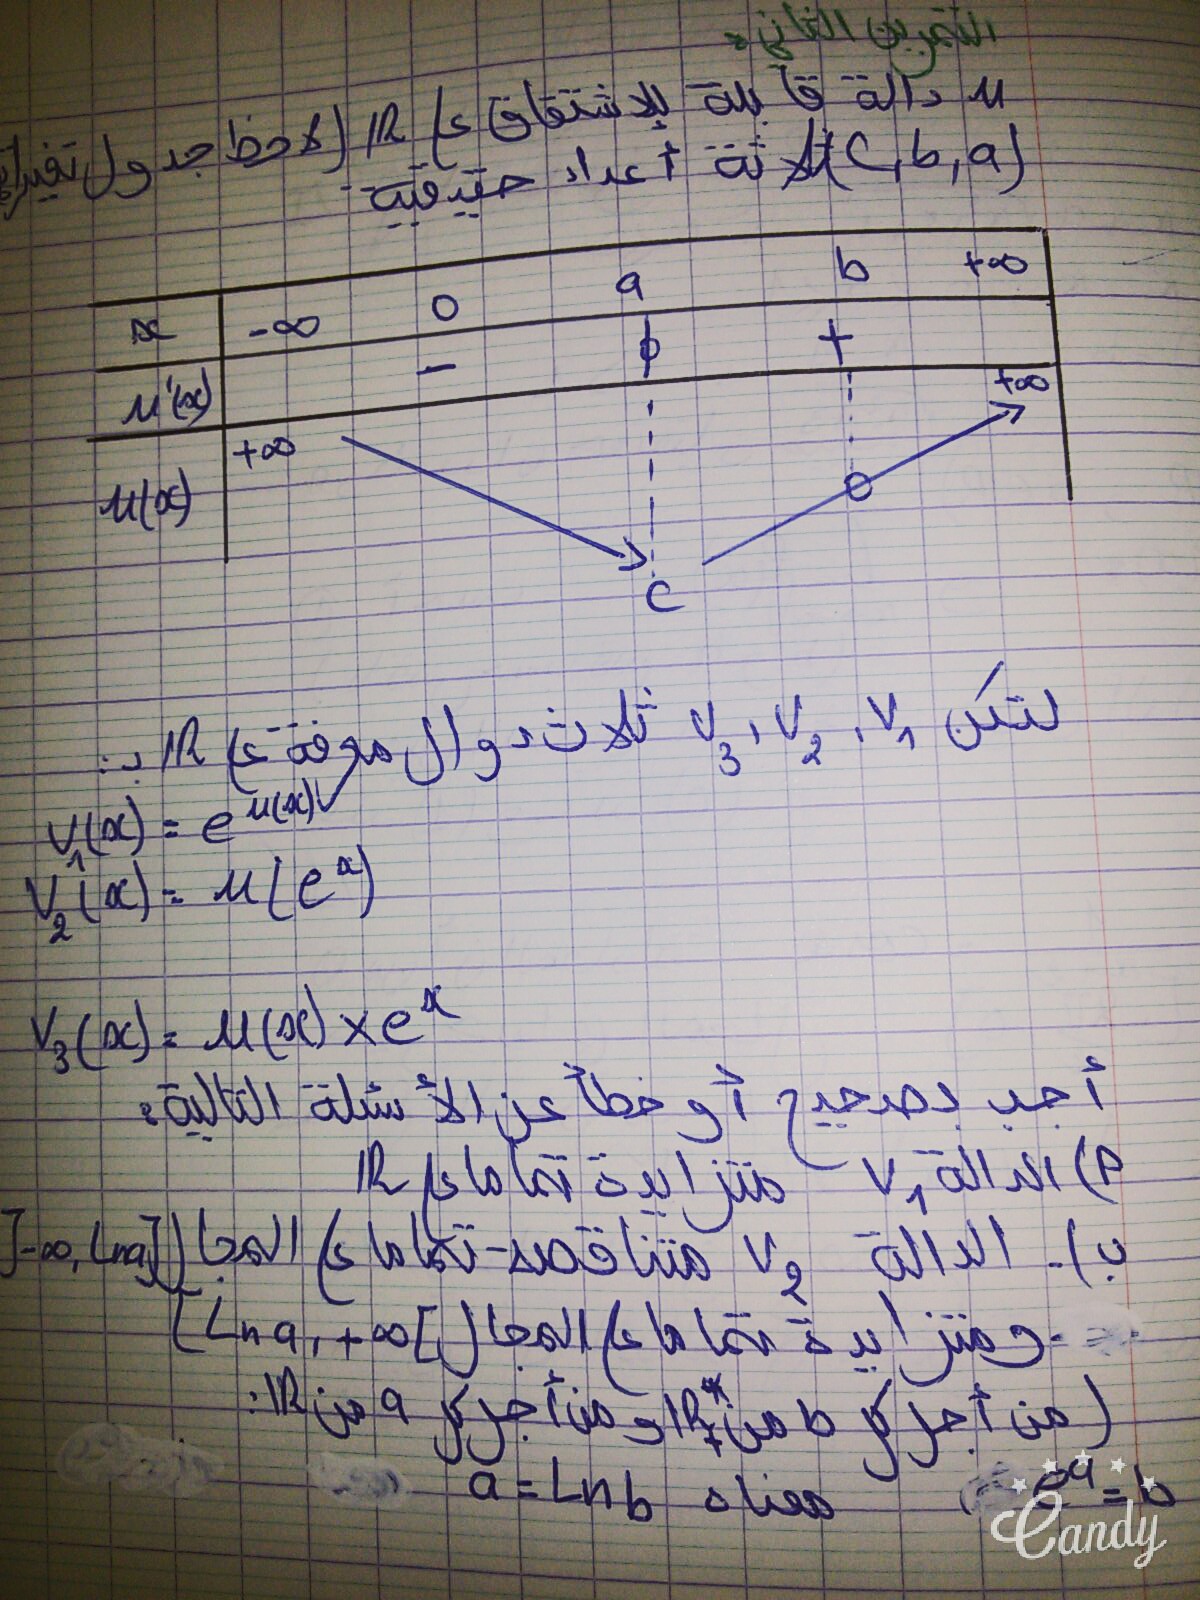 التمرين الثاني :
u دالة قابلة للإشتقاق على IR (لاحظ جدول تغيراتها
(c, b, a ثلاثة أعداد حقيقية
x -∞ 0 a b +∞
u'(x) - 0 +
u(x) +∞ c 0 +∞
لتكن V₁ ، V₂ ، V₃ ثلاث دوال معرفة على IR بـ:
V₁(x) = e^u(x)
V₂(x) = u(e^x)
V₃(x) = u(x) × e^x
أجب بصحيح أو خطأ عن الأسئلة التالية:
أ) الدالة V₁ متزايدة تماما على IR
ب) - الدالة V₂ متناقصة تماما على المجال ]-∞, Ln a]
- ومتزايدة تماما على المجال ]Ln a, +∞[
(من أجل كل b من IR*₊ ومن أجل كل a من IR :
e^a = b معناه a = Ln b
Candy